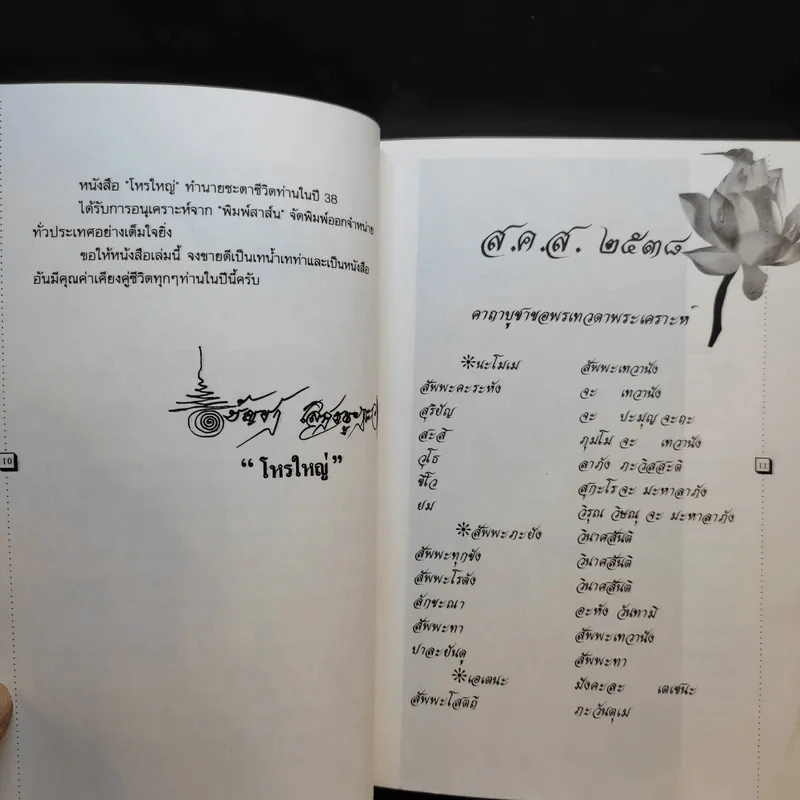 หนังสือ "โหรใหญ่" ทำนายชะตาชีวิตท่านในปี 38
ได้รับการอนุเคราะห์จาก "พิมพ์สาส์น" จัดพิมพ์ออกจำหน่าย
ทั่วประเทศอย่างเต็มใจยิ่ง
ขอให้หนังสือเล่มนี้ จงขายดีเป็นเทน้ำเทท่าและเป็นหนังสือ
อันมีคุณค่าเคียงคู่ชีวิตทุกๆท่านในปีนี้ครับ
" โหรใหญ่ "
10
ส.ค.ส. ๒๕๓๘
คาถาบูชาขอพรเทวดาพระเคราะห์
นะโมเม สัพพะเทวานัง
สัพพะคะระหัง จะ เทวานัง
สุริยัญ จะ ปะมุญ จะถะ
สะสิ ภุมโม จะ เทวานัง
วุโธ ลาภัง ภะวิสสะติ
ชีโว สุกะโร จะ มะหาลาภัง
ยม วิรุณ วิษณุ จะ มะหาลาภัง
สัพพะภะยัง วินาศสันติ
สัพพะทุกขัง วินาศสันติ
สัพพะโรคัง วินาศสันติ
ลักขะณา อะหัง วันทามิ
สัพพะทา สัพพะเทวานัง
ปาละยันตุ สัพพะทา
เอเตนะ มังคะละ เตเชนะ
สัพพะโสตถี ภะวันตุเม
11